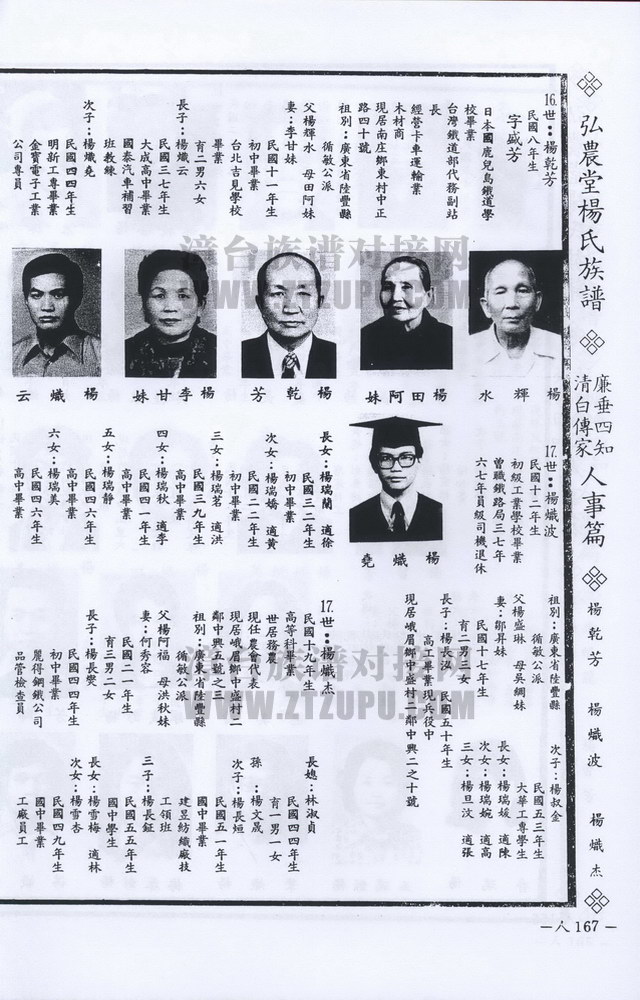 弘農堂楊氏族譜
廉垂四知
清白傳家
人事篇
楊乾芳
楊熾波
楊熾杰
—人167—
16.世：楊乾芳
字盛芳
民國八年生
日本國鹿兒島鐵道學
校畢業
台灣鐵道部代務副站
長
經營卡車運輸業
木材商
現居南庄鄉東村中正
路四十號
祖別：廣東省陸豐縣
循敏公派
父楊輝水 母田阿妹
妻：李甘妹
民國十一年生
初中畢業
台北吉見學校
畢業
育二男六女
長子：楊熾云
民國三七年生
大成高中畢業
國泰汽車補習
班教練
次子：楊熾堯
民國四四年生
明新工專畢業
金寶電子工業
公司專員
楊輝水
楊田阿妹
楊乾芳
楊李甘妹
楊熾云
楊熾堯
長女：楊瑞蘭 適徐
民國三二年生
初中畢業
次女：楊瑞嬌 適黃
民國二二年生
初中畢業
三女：楊瑞茗 適洪
民國三九年生
高中畢業
四女：楊瑞秋 適李
民國四一年生
高中畢業
五女：楊瑞靜
民國四六年生
高中畢業
六女：楊瑞美
民國四六年生
高中畢業
17.世：楊熾波
民國十二年生
初級工業學校畢業
曾職鐵路局三七年
六七年員級司機退休
祖別：廣東省陸豐縣
循敏公派
父楊盛琳 母吳綢妹
妻：鄒昇妹
民國十七年生
育二男三女
長子：楊長泓 民國五十年生
高工畢業現兵役中
現居峨眉鄉中盛村二鄰中興二之十號
次子：楊叔金
民國五三年生
大華工專學生
長女：楊瑞媛 適陳
次女：楊瑞婉 適高
三女：楊旦汶 適張
17.世：楊熾杰
民國十九年生
高等科畢業
世居務農
現任農會代表
現居峨眉鄉中盛村二
鄰中興五號之三
祖別：廣東省陸豐縣
循敏公派
父楊阿福 母洪秋妹
妻：何秀容
民國二一年生
育三男二女
長子：楊長燮
民國四四年生
初中畢業
麗得鋼鐵公司
品管檢查員
長媳：林淑貞
民國四四年生
育一男一女
孫：楊文晟
次子：楊長烜
民國五一年生
國中畢業
建昱紡織廠技
工領班
三子：楊長鉦
民國五五年生
國中學生
長女：楊雪梅 適林
次女：楊雪杏
民國四九年生
國中畢業
工廠員工
漳台族谱对接网
WWW.ZTZUPU.COM
漳台族谱对接网
WWW.ZTZUPU.COM